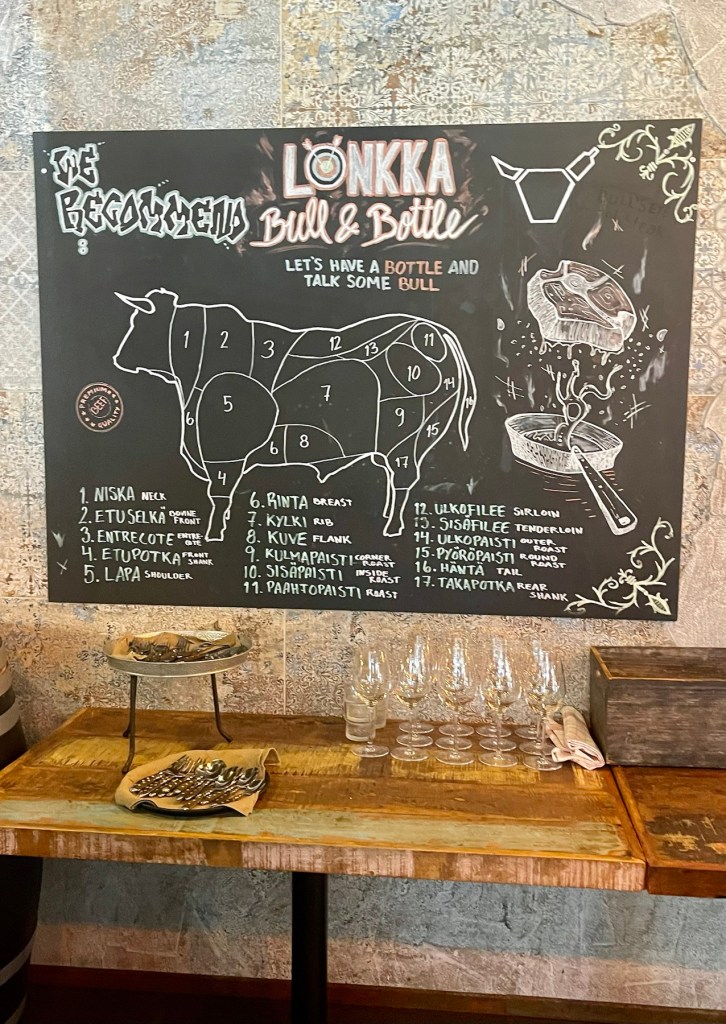 WE
RECOMMEND
:
LONKKA
Bull & Bottle
LET'S HAVE A BOTTLE AND
TALK SOME BULL
1
2
3
12
13
11
10
14
16
5
7
9
15
6
6
8
4
17
PREMIUM
BEEF
QUALITY
1. NISKA NECK
2. ETUSELKÄ BOVINE FRONT
3. ENTRECOTE ENTRE-COTE
4. ETUPOTKA FRONT SHANK
5. LAPA SHOULDER
6. RINTA BREAST
7. KYLKI RIB
8. KUVE FLANK
9. KULMAPAISTI CORNER ROAST
10. SISÄPAISTI INSIDE ROAST
11. PAAHTOPAISTI ROAST
12. ULKOFILEE SIRLOIN
13. SISÄFILEE TENDERLOIN
14. ULKOPAISTI OUTER ROAST
15. PYÖRÖPAISTI ROUND ROAST
16. HÄNTÄ TAIL
17. TAKAPOTKA REAR SHANK